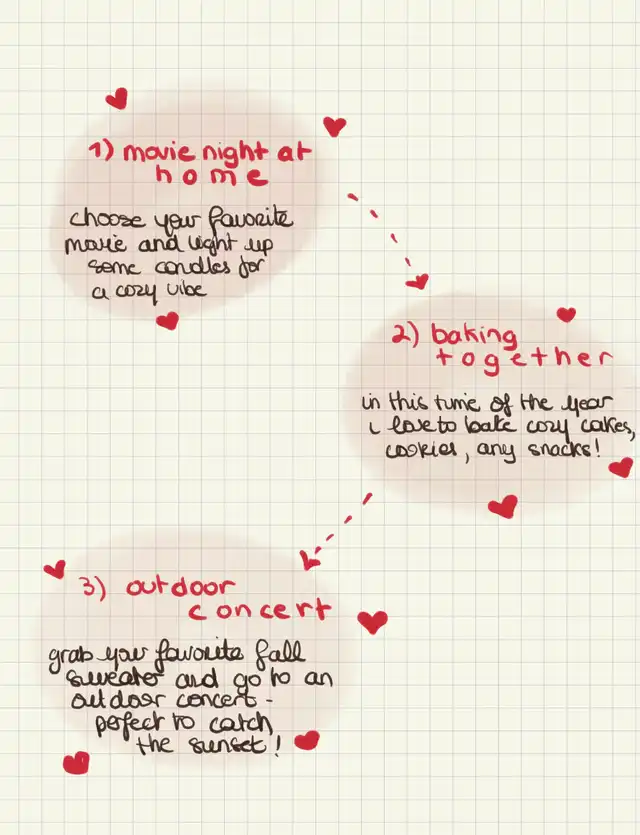 1) movie night at
home
choose your favorite
movie and light up
some candles for
a cozy vibe
2) baking
together
in this time of the year
i love to bake cozy cakes,
cookies, any snacks!
3) outdoor
concert
grab your favorite fall
sweater and go to an
outdoor concert -
perfect to catch
the sunset!